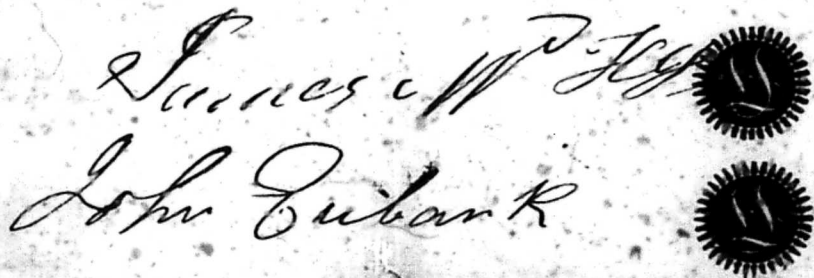 James W
John Eubank